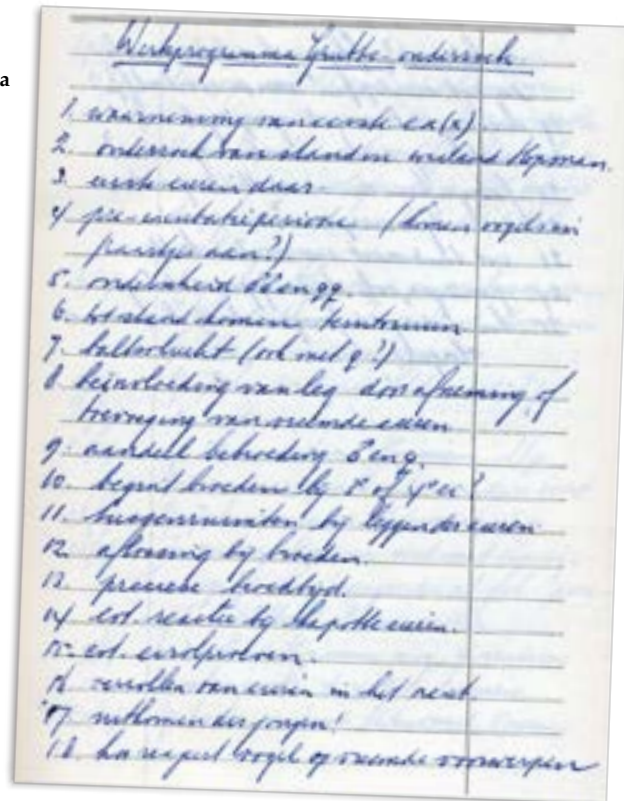 a
Werkprogramma Grutto-onderzoek
1. waarneming van eerste ex(x)
2. onderzoek van stand in weiland Kopman.
3. eerste eieren daar.
4 pre-incubatieperiode (komen vogels in
paartjes aan?)
5. onderscheid ♂♂ en ♀♀.
6. tot stand komen territorium
7. baltsvlucht (ook met ♀?)
8 beïnvloeding van leg door afneming of
toevoeging van vreemde eieren
9. aandeel bebroeding ♂ en ♀.
10. begint broeden bij 3e of 4e ei?
11. tussenruimten bij leggen der eieren
12. aflossing bij broeden.
13. precieze broedtijd.
14 evt. reactie bij kapotte eieren.
15. evt. eirolproeven.
16 verrollen van eieren in het nest.
17. uitkomen der jongen!
18. hoe reageert vogel op vreemde voorwerpen